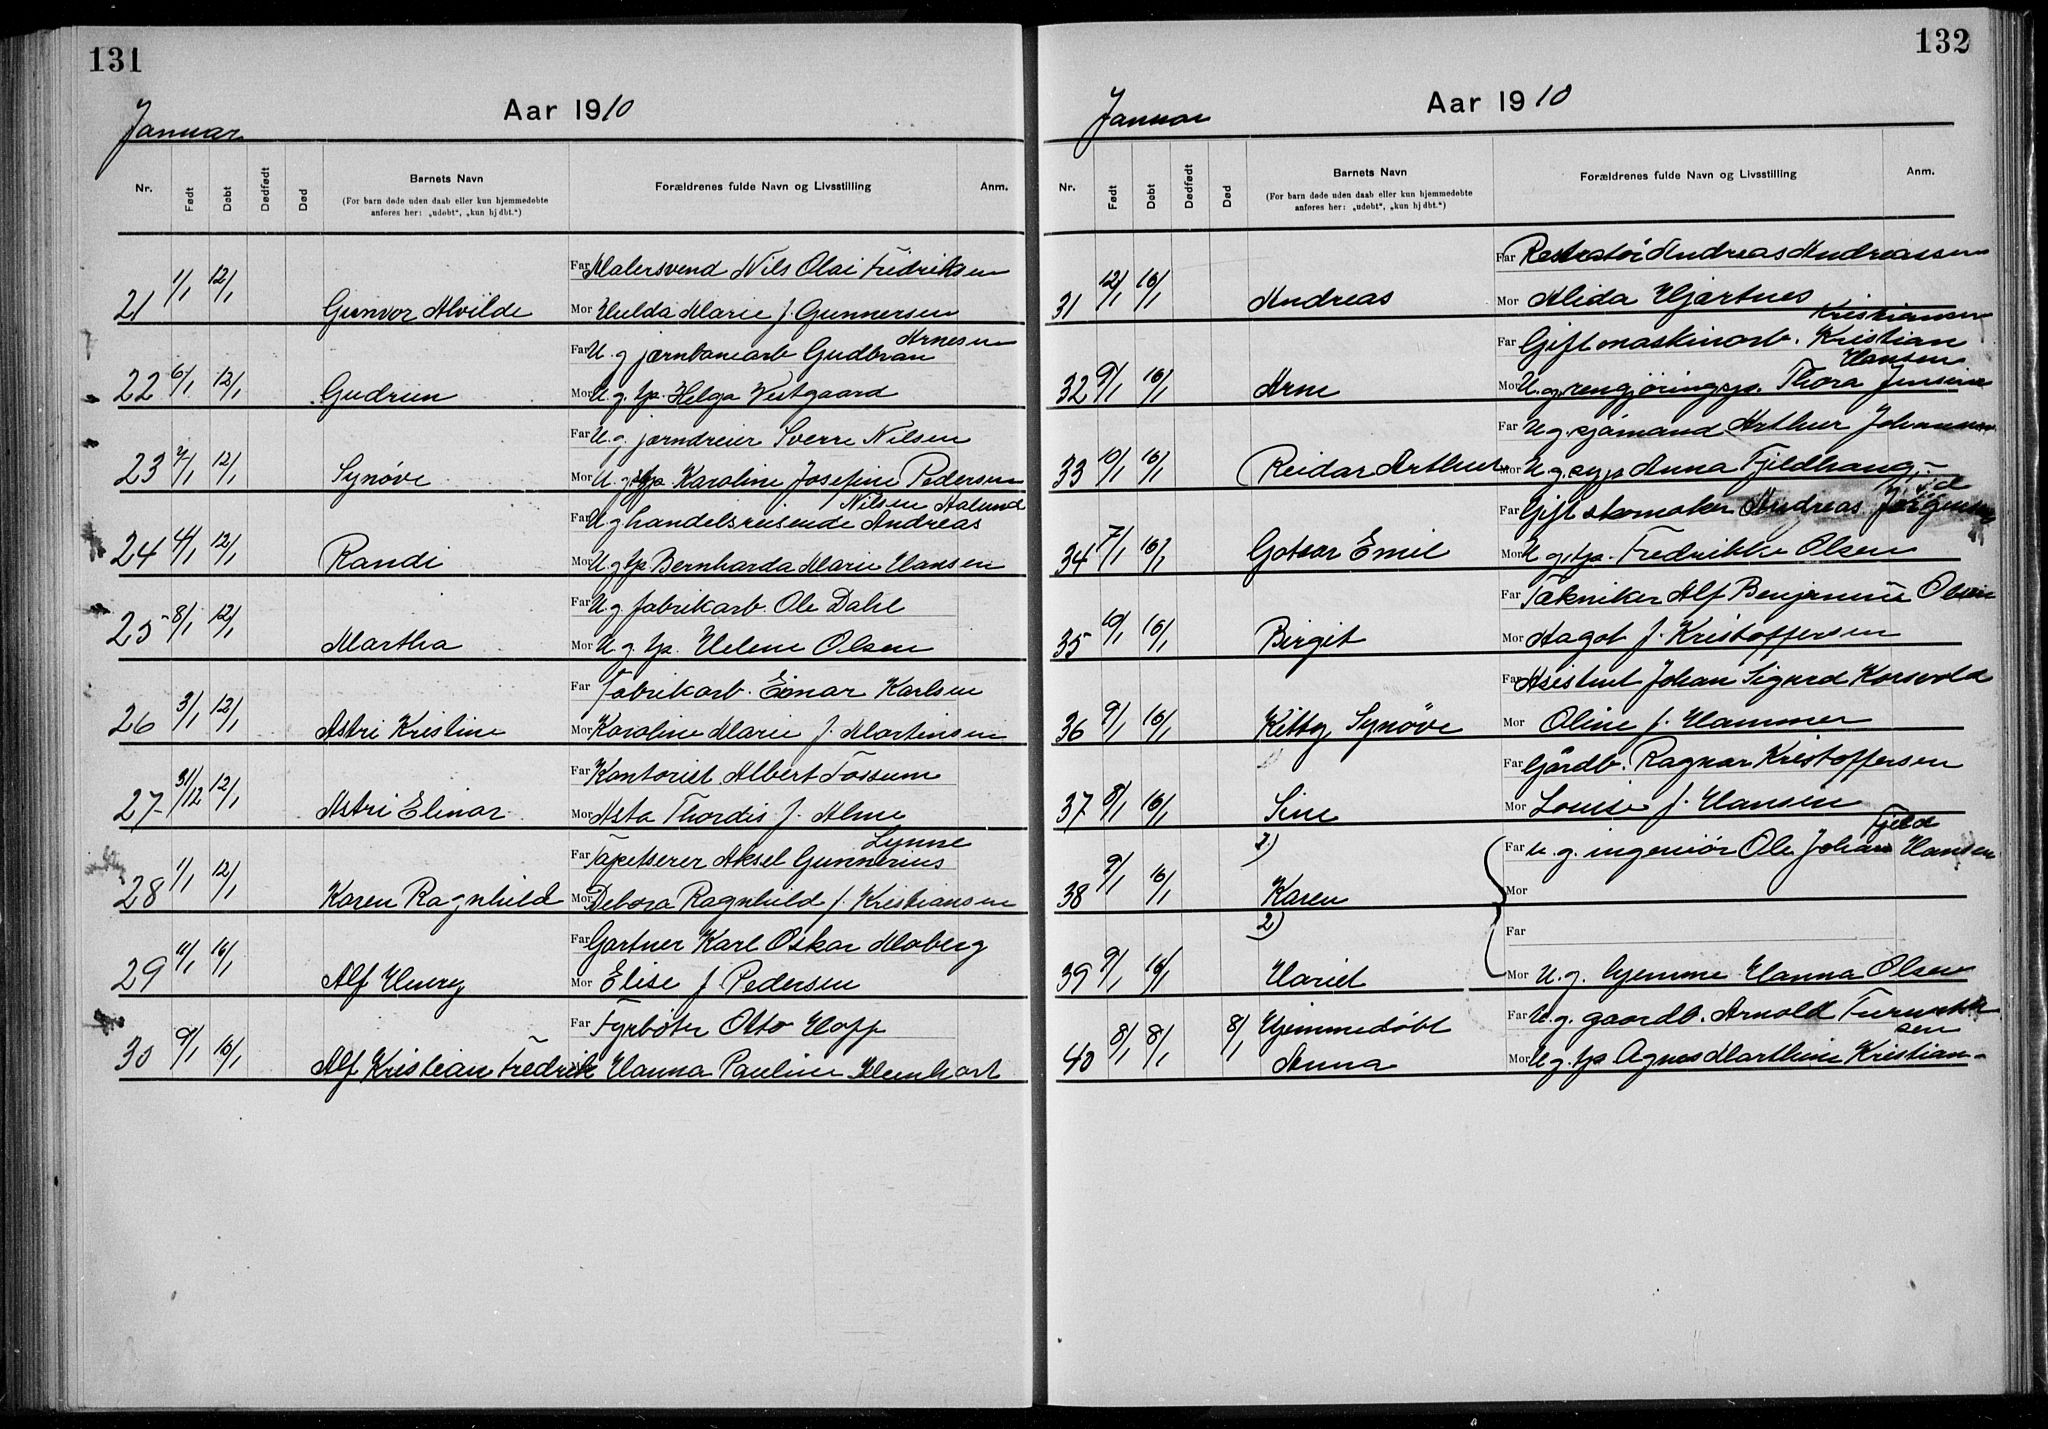 131
Aar 1910
Januar
Nr. Født Døbt Dødfødt Død Barnets Navn Forældrenes fulde Navn og Livsstilling Anm.
(For barn døde uden daab eller kun hjemmedøbte
anføres her: „udøbt“, „kun hj dbt.“)
Far Malersvend Nils Olai Fredriksen
21 1/1 12/1 Gunvor Alvilde Mor Hulda Marie f. Gunnersen
Arnesen
Far U. g jernbanearb Gudbran
22 6/1 12/1 Gudrun Mor U. g. tp. Helga Vestgaard
Far U. g. jerndreier Sverre Nilsen
23 7/1 12/1 Synøve Mor U. g. Karoline Josefine Pedersen
Nilsen Aalund
Far U g handelsreisende Andreas
24 4/1 12/1 Randi Mor U. g tp Bernharda Marie Hansen
Far U g fabrikarb. Ole Dahl
25 8/1 12/1 Martha Mor U. g. tp. Helene Olsen
Far Fabrikarb. Einar Karlsen
26 3/1 12/1 Astri Kristine Mor Karoline Marie f. Martinsen
Far Kontorist Albert Fossum
27 31/12 12/1 Astri Elinor Mor Asta Thordis f. Alme
Lynne
Far Tapetserer Aksel Gunnerius
28 1/1 12/1 Karen Ragnhild Mor Debora Ragnhild f. Kristiansen
Far Gartner Karl Oskar Moberg
29 11/1 16/1 Alf Henry Mor Elise f Pedersen
Far Fyrbøter Otto Hoff
30 9/1 16/1 Alf Kristian Fredrik Hanna Pauline
132
Aar 1910
Januar
Nr. Født Døbt Dødfødt Død Barnets Navn Forældrenes fulde Navn og Livsstilling Anm.
(For barn døde uden daab eller kun hjemmedøbte
anføres her: „udøbt“, „kun hj dbt.“)
Far Andreas Andreassen
31 12/1 16/1 Andreas Mor Alida Hjertnes
Kristiansen
Far Gift maskinarb. Kristian
Hansen
32 9/1 16/1 Arne Mor U. g. rengjøringsp. Thora Jensine
Far U g. sjømand Arthur Johansen
33 10/1 16/1 Reidar Arthur Mor U g. syp Anna Fjeldhaug
Far Gift skomaker Andreas Jørgensen
34 7/1 16/1 Gotvar Emil Mor U g. tp. Fredrikke Olsen
Far Tekniker Alf Benjamin Olsen
35 10/1 16/1 Birgit Mor Aagot f. Kristoffersen
Far Asistent Johan Sigurd Korsvold
36 9/1 16/1 Kitty Synøve Mor Oline f. Hammer
Far Gårdb. Ragnar Kristoffersen
37 8/1 16/1 Sine Mor Louise f. Hansen
Fjeld
1) Far U. g. ingeniør Ole Johan Hansen
38 9/1 16/1 Karen Mor
2) Far
39 9/1 16/1 Hariet Mor U. g. hjemme Hanna Olsen
40 8/1 8/1 8/1 Hjemmedøbt Far U. g. gaardb. Arnold
sen
Anna Mor U g. tp Agnes Marthine Kristian-